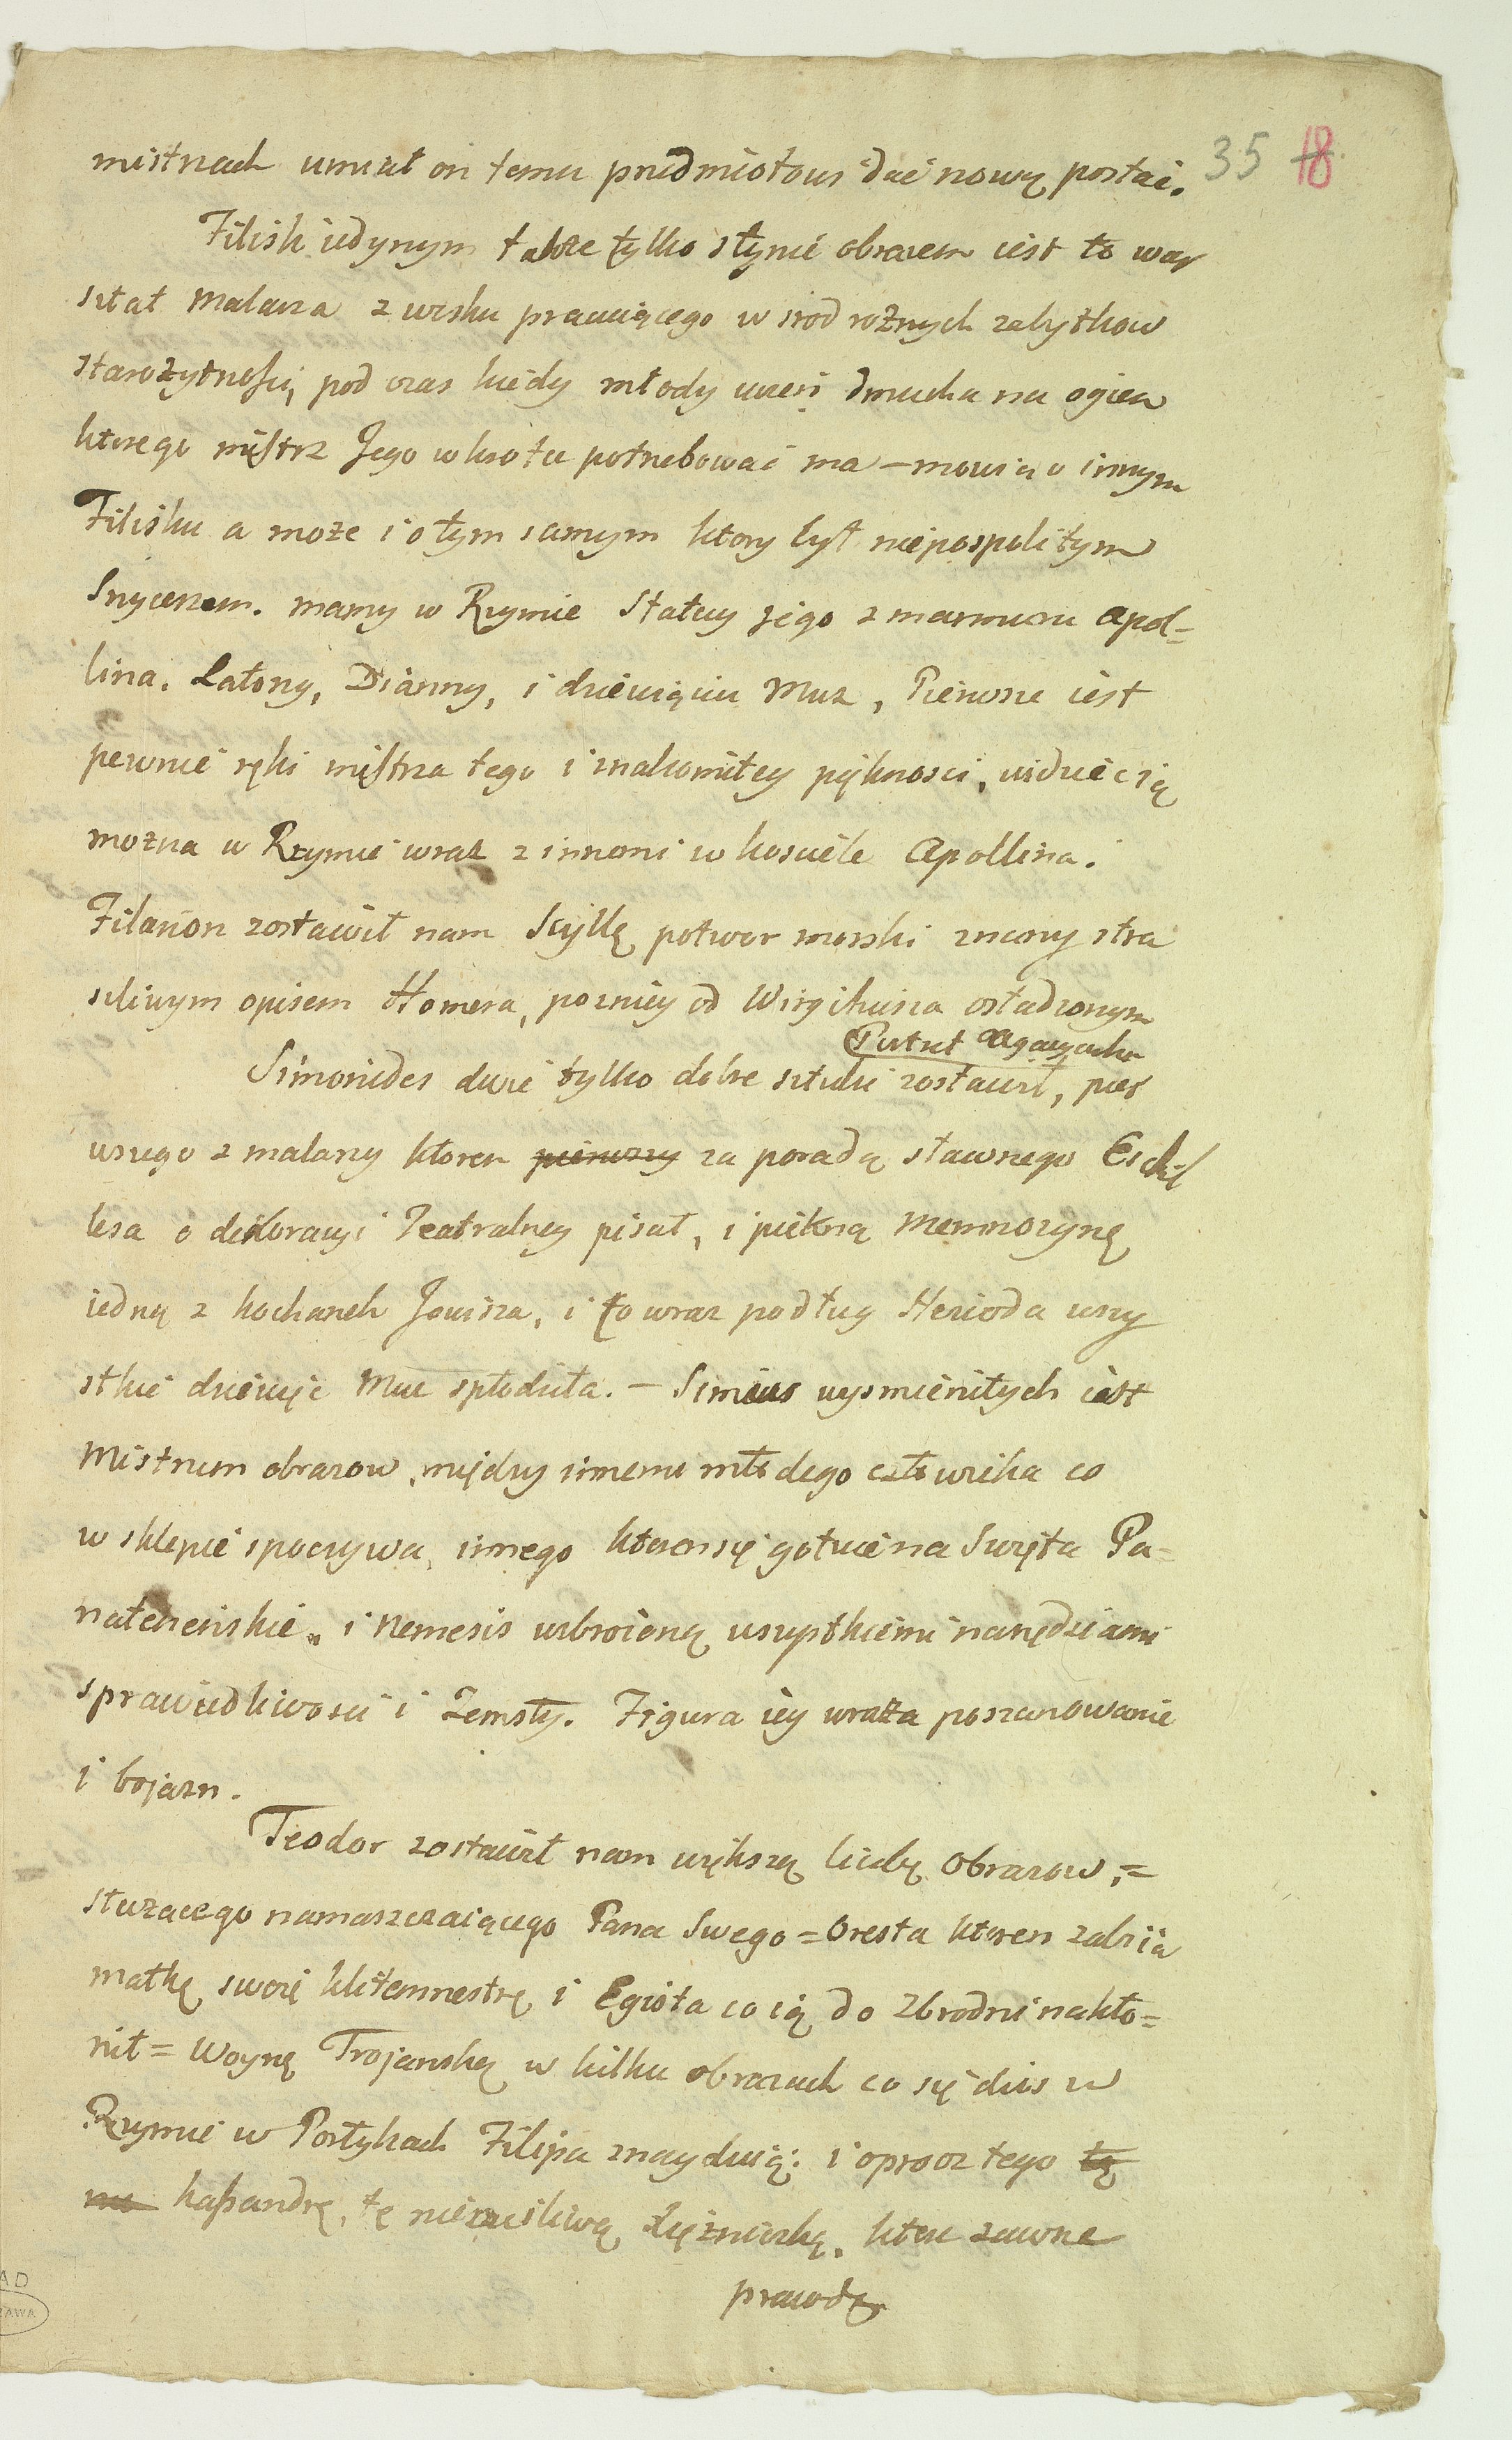 35 18
mistrzach umiał on temu przedmiotowi dać nową postać.
Filisk iedynym także tylko słynie obrazem iest to war
sztat Malarza z wosku pracuiącego w srod rożnych zabytkow
starożytnosci, pod czas kiedy młody uczeń dmucha na ogien
ktorego mistrz Jego wkrotce potrzebować ma – mowią o innym
Filisku a może i o tym samym ktory był niepospolitym
Snycerzem. mamy w Rzymie Statuy jego z marmuru Apol=
lina. Latony, Dianny, i dziewięciu Muz, Pierwsze iest
pewnie ręki mistrza tego i znakomitey pięknosci, widzieć ią
można w Rzymie wraz z innemi w kosciele Apollina.
Filarion zostawił nam Scyllę potwor morski znany stra
szliwym opisem Homera, pozniey od Wirgiliusza osładzonym
Portret Agatarcha
Simonides dwie tylko dobre sztuki zostawił, pier
wszego z malarzy ktoren pierwszy za poradą sławnego Eschil
lesa o dekoracyi Teatralney pisał, i piękną Memnozynę
iedną z kochanek Jowisza, i to wraz podług Hezioda wszy
stkie dziewięć Muz spłodziła. – Simius wysmienitych iest
Mistrzem obrazow, między innemi młodego człowieka co
w sklepie spoczywa, innego ktoren się gotuie na Swięta Pa=
nateneńskie, i Nemesis uzbroioną wszystkiemi narzędziami
sprawiedliwosci i Zemsty. Figura iey wraża poszanowanie
i bojazn.
Teodor zostawił nam większą liczbę obrazow, =
służącego namaszczaiącego Pana Swego = Oresta ktoren zabiia
matkę swoię Klitemnestrę i Egista co ią do Zbrodni nakło=
nił = Woynę Trojańską w kilku obrazach co się dziś w
Rzymie w Portykach Filipa znayduią: i oprocz tego tę
nie Kassandrę, tę nieszczęśliwą Xiężniczkę, ktora zawsze
prawdę